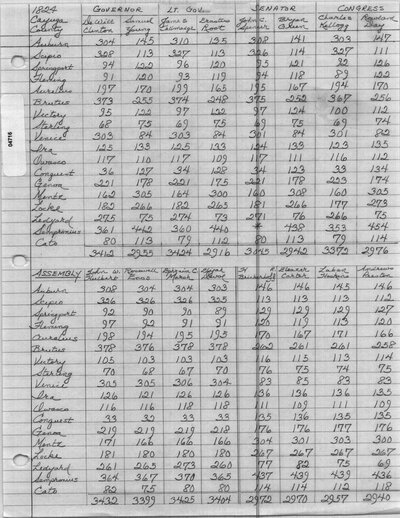 1824 GOVERNOR LT. GOV. SENATOR CONGRESS
Cayuga County DeWitt Clinton Samuel Young James Tallmadge Erastus Root John C. Spencer Byram Green Charles Kellogg Rowland Day
Auburn 304 145 310 135 308 141 303 147
Scipio 328 113 327 113 326 114 327 111
Springport 94 132 96 120 95 121 82 126
Fleming 91 120 93 119 94 118 89 122
Aurelius 197 170 199 165 195 167 194 170
Brutus 373 255 374 248 375 252 367 256
Victory 95 132 97 132 97 124 100 112
Sterling 68 75 69 75 69 75 69 74
Venice 303 84 303 84 301 84 301 82
Ira 125 133 125 133 124 133 123 135
Owasco 117 110 117 109 117 111 116 112
Conquest 36 127 34 128 34 123 33 134
Genoa 221 178 221 175 221 178 223 174
Montz 162 305 164 300 160 308 160 305
Locke 182 266 182 265 181 266 177 273
Ledyard 275 75 274 73 271 76 266 75
Sempronius 361 442 360 440 * 438 353 454
Cato 80 113 79 112 80 113 79 114
3412 2955 3424 2916 3045 2942 3372 2976
ASSEMBLY John W. Roswell Augustus
Auburn 308 304 304 303 146 146 145 146
Scipio 326 326 326 325 113 113 113 112
Springport 92 90 90 89 129 129 129 127
Fleming 97 92 91 91 120 119 113 120
Aurelius 198 194 195 195 170 167 171 166
Brutus 378 376 378 378 262 261 261 258
Victory 105 103 103 103 116 115 113 114
Sterling 70 68 67 70 76 75 74 75
Venice 305 305 306 304 83 85 83 83
Ira 126 121 126 126 136 136 136 135
Owasco 116 116 118 118 111 109 111 109
Conquest 33 32 33 33 135 136 135 135
Genoa 219 219 219 218 176 176 177 176
Montz 171 166 166 166 304 301 303 300
Locke 181 180 180 180 267 267 267 267
Ledyard 261 265 273 260 77 82 75 69
Sempronius 364 367 370 365 437 439 439 436
Cato 82 75 80 80 114 114 112 118
3432 3399 3425 3404 2972 2970 2957 2940
04716